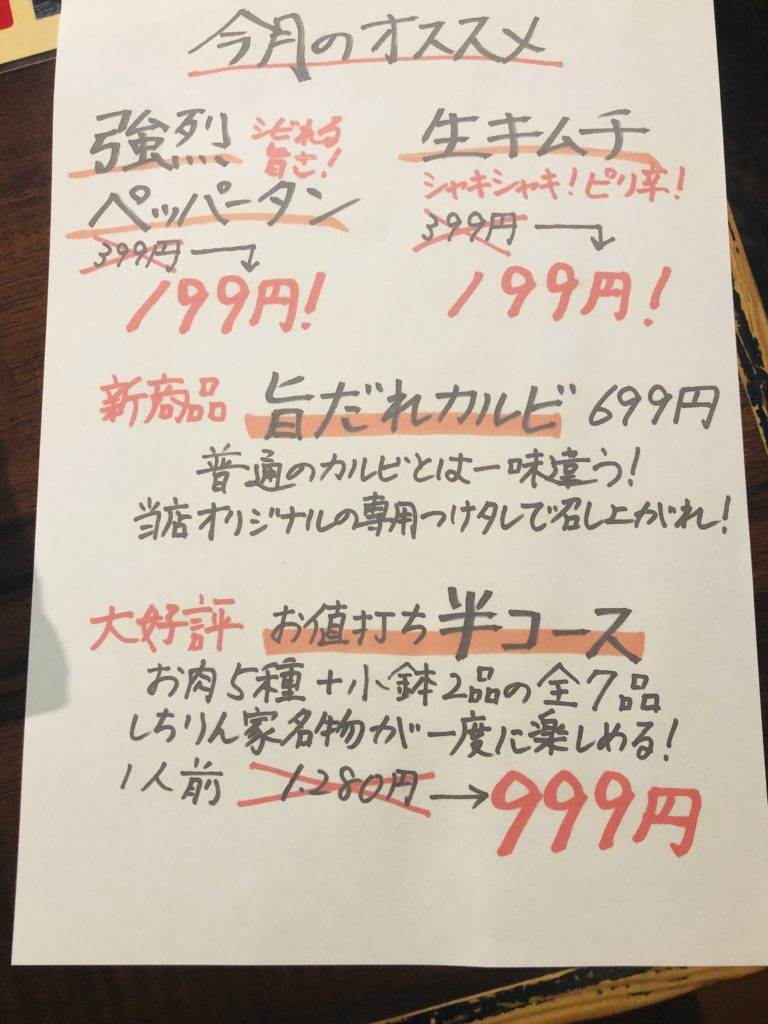 今月のオススメ
強烈
シビれる
旨さ!
ペッパータン
399円
199円!
生キムチ
シャキシャキ!ピリ辛!
399円
199円!
新商品 旨だれカルビ 699円
普通のカルビとは一味違う!
当店オリジナルの専用つけタレで召し上がれ!
大好評 お値打ち半コース
お肉5種+小鉢2品の全7品
しちりん家名物が一度に楽しめる!
1人前 1.280円→999円